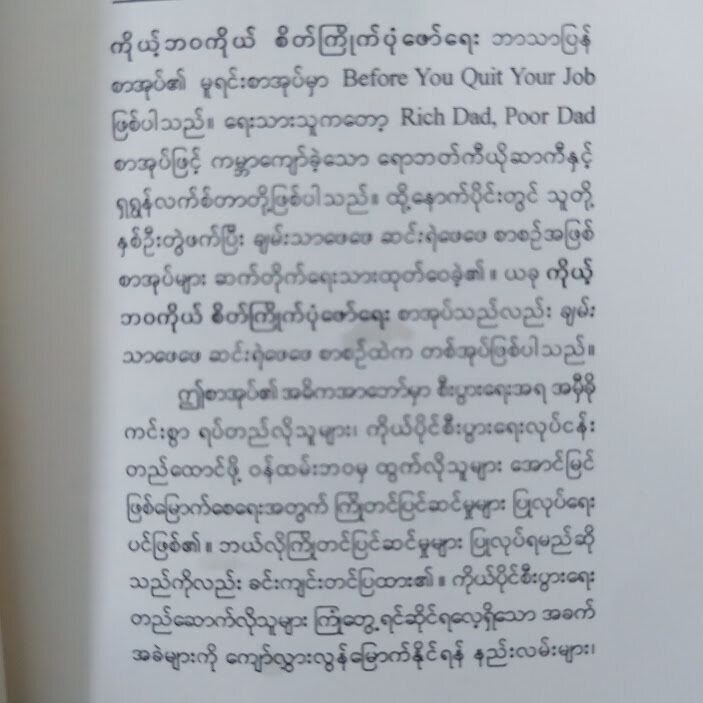 ကိုယ့်ဘဝကိုယ် စိတ်ကြိုက်ပုံဖော်ရေး ဘာသာပြန်
စာအုပ်၏ မူရင်းစာအုပ်မှာ Before You Quit Your Job
ဖြစ်ပါသည်။ ရေးသားသူကတော့ Rich Dad, Poor Dad
စာအုပ်ဖြင့် ကမ္ဘာကျော်ခဲ့သော ရောဘတ်ကီယိုဆာကီနှင့်
ရှရွန်လက်စ်တာတို့ဖြစ်ပါသည်။ ထို့နောက်ပိုင်းတွင် သူတို့
နှစ်ဦးတွဲဖက်ပြီး ချမ်းသာဖေဖေ ဆင်းရဲဖေဖေ စာစဉ်အဖြစ်
စာအုပ်များ ဆက်တိုက်ရေးသားထုတ်ဝေခဲ့၏။ ယခု ကိုယ့်
ဘဝကိုယ် စိတ်ကြိုက်ပုံဖော်ရေး စာအုပ်သည်လည်း ချမ်း
သာဖေဖေ ဆင်းရဲဖေဖေ စာစဉ်ထဲက တစ်အုပ်ဖြစ်ပါသည်။
ဤစာအုပ်၏ အဓိကအာဘော်မှာ စီးပွားရေးအရ အမှီခို
ကင်းစွာ ရပ်တည်လိုသူများ၊ ကိုယ်ပိုင်စီးပွားရေးလုပ်ငန်း
တည်ထောင်ဖို့ ဝန်ထမ်းဘဝမှ ထွက်လိုသူများ အောင်မြင်
ဖြစ်မြောက်စေရေးအတွက် ကြိုတင်ပြင်ဆင်မှုများ ပြုလုပ်ရေး
ပင်ဖြစ်၏။ ဘယ်လိုကြိုတင်ပြင်ဆင်မှုများ ပြုလုပ်ရမည်ဆို
သည်ကိုလည်း ခင်းကျင်းတင်ပြထား၏။ ကိုယ်ပိုင်စီးပွားရေး
တည်ဆောက်လိုသူများ ကြုံတွေ့ရင်ဆိုင်ရလေ့ရှိသော အခက်
အခဲများကို ကျော်လွှားလွန်မြောက်နိုင်ရန် နည်းလမ်းများ၊